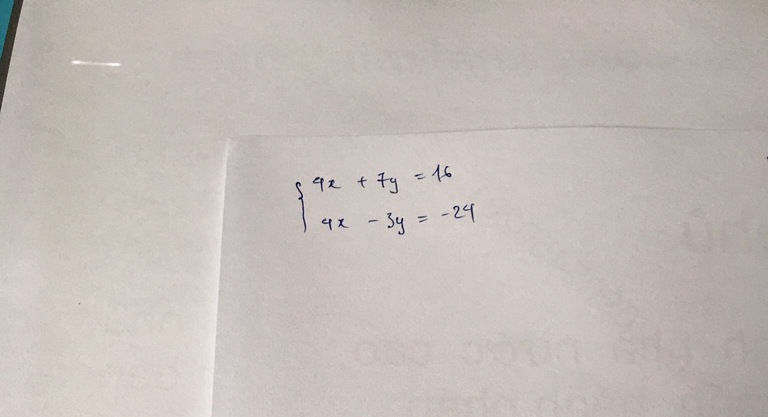 4x + 7y = 16
4x - 3y = -24